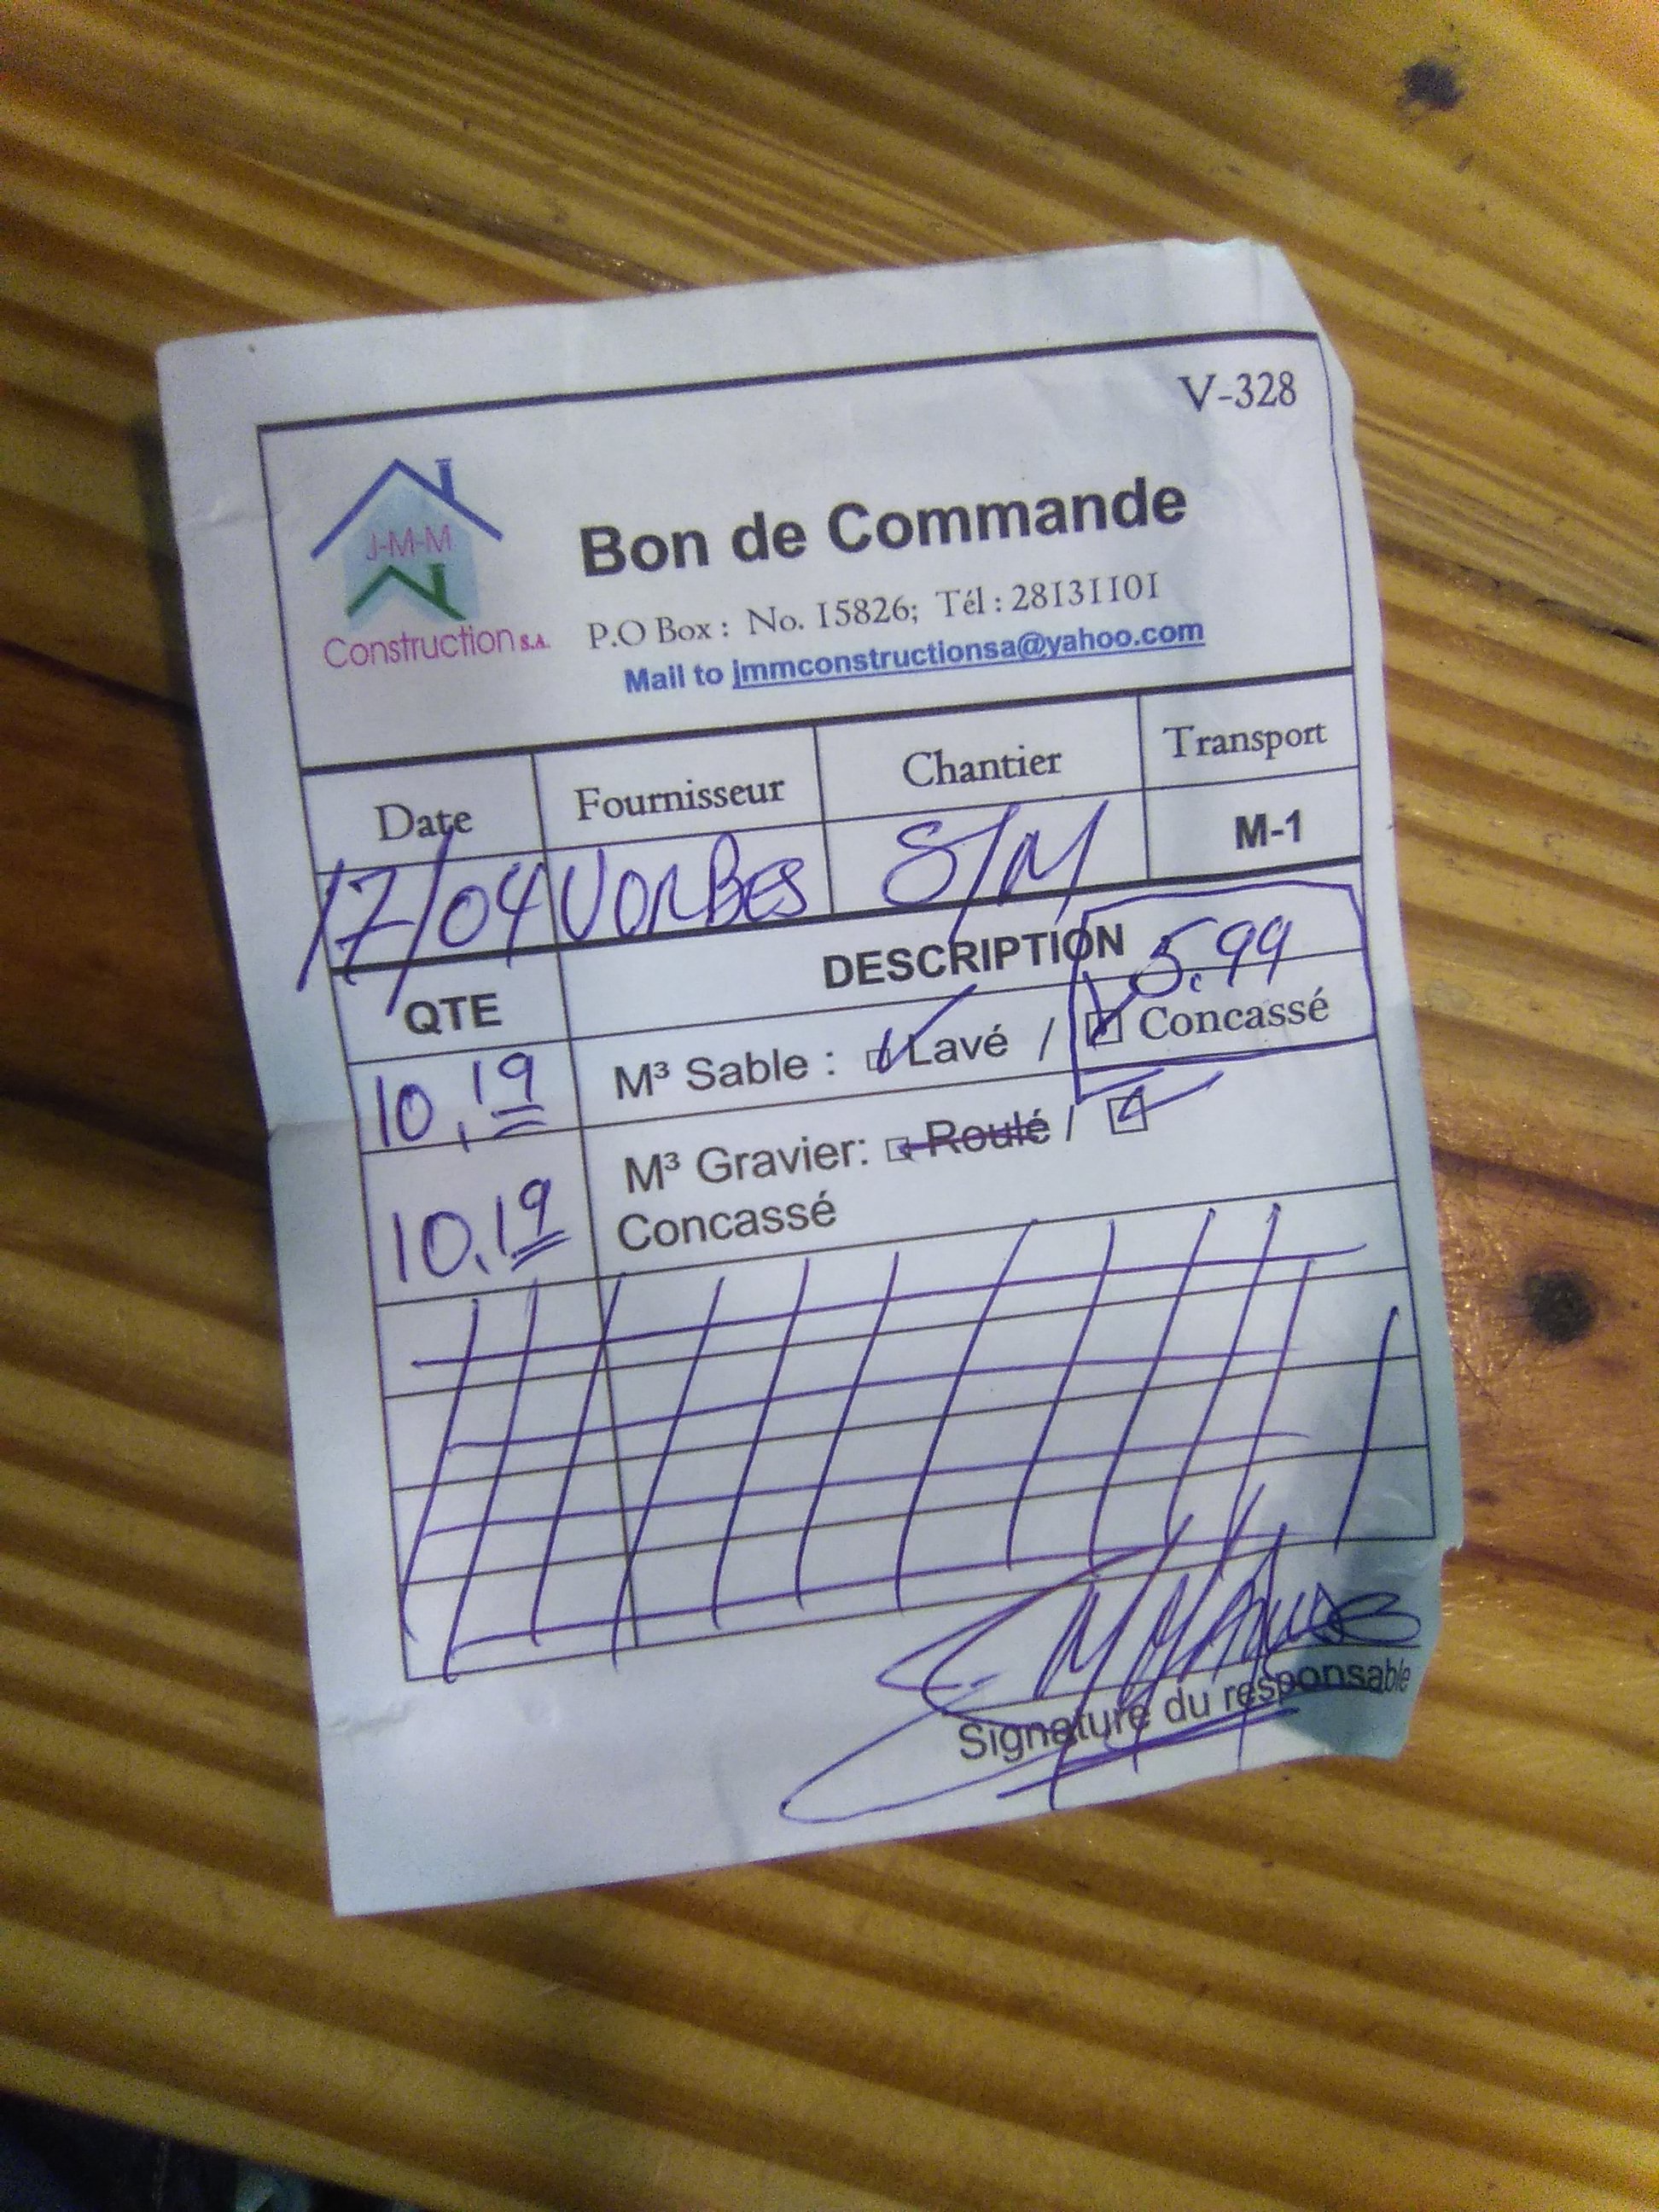 V-328
J-M-M
Construction S.A.
Bon de Commande
P.O Box : No. 15826; Tél : 28131101
Mail to jmmconstructionsa@yahoo.com
Date Fournisseur Chantier Transport
17/04 VORBES S/M M-1
QTE DESCRIPTION 5.99
10,19 M³ Sable : Lavé / Concassé
10,19 M³ Gravier: Roulé /
Concassé
Signature du responsable